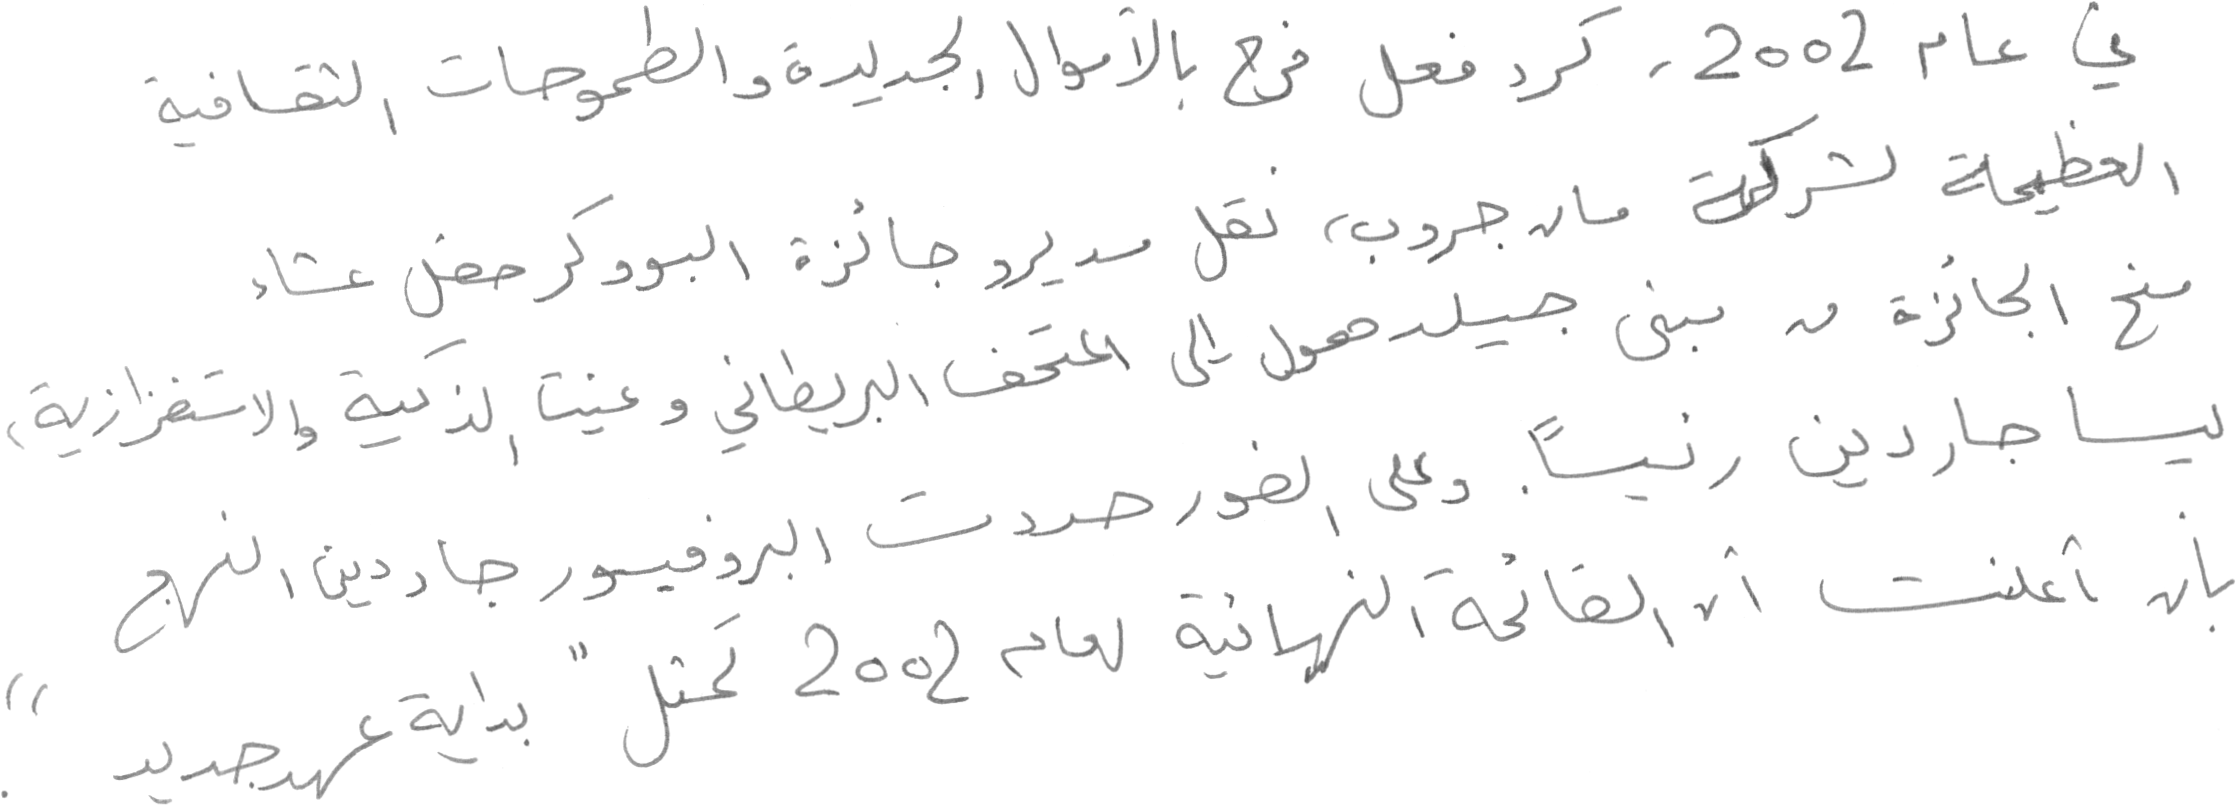 في عام 2002، كرد فعل فرح بالأموال الجديدة والطموحات الثقافية
العظيمة لشركة مان جروب، نقل مديرو جائزة البووكر حفل عشاء
منح الجائزة من مبنى جيلدهول إلى المتحف البريطاني وعينت الذكية والاستفزازية،
ليسا جاردين رئيساً. وعلى الفور حددت البروفيسور جاردين النهج
بأن أعلنت أن القائمة النهائية لعام 2002 تمثل "بداية عهد جديد".